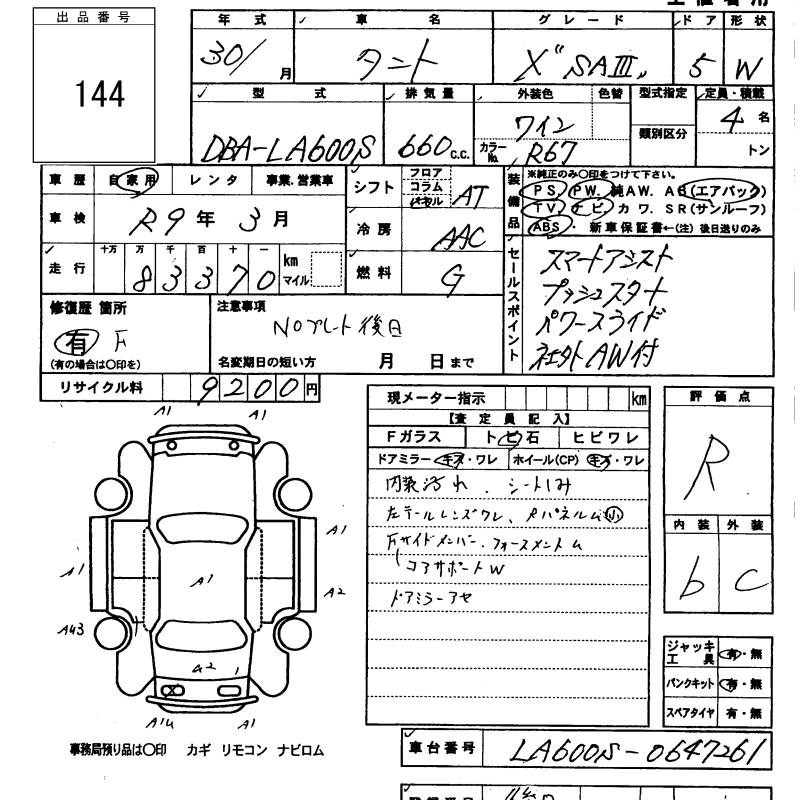 出品番号
144
年 式 車 名 グレード ドア 形状
30/ 月 タント X" SAⅢ" 5 W
型 式 排気量 外装色 色替 型式指定 定員・積載
DBA-LA600S 660 c.c. ワイン 類別区分 4 名
カラーNo. R67 トン
車歴 自家用 レンタ 事業、営業車
車検 R9 年 3 月
走行 十万 万 千 百 十 一 km マイル
8 3 3 7 0
シフト フロア コラム パネル AT
冷房 AAC
燃料 G
装備品
※純正のみ〇印をつけて下さい。
PS PW. 純AW. AB(エアバック)
TV ナビ カワ. SR(サンルーフ)
ABS・ 新車保証書←(注) 後日送りのみ
セールスポイント
スマートアシスト
プッシュスタート
パワースライド
社外AW付
修復歴 箇所
有 F
(有の場合は〇印を)
注意事項
NOプレート後日
名変期日の短い方 月 日まで
リサイクル料 9200円
現メーター指示 km
【査定員記入】
Fガラス トビ石 ヒビワレ
ドアミラー キズ・ワレ ホイール(CP) キズ・ワレ
内装汚れ、シートしみ
左テールレンズワレ、RパネルM 小
Fサイドメンバー・フォースメントM
コアサポートW
ドアミラーアセ
評価点
R
内装 外装
b C
ジャッキ工具 有・無
パンクキット 有・無
スペアタイヤ 有・無
A1 A1
A1
A1 A1 A2
A43
A2
A14 A1
事務局預り品は〇印 カギ リモコン ナビロム
車台番号 LA600S-0647261